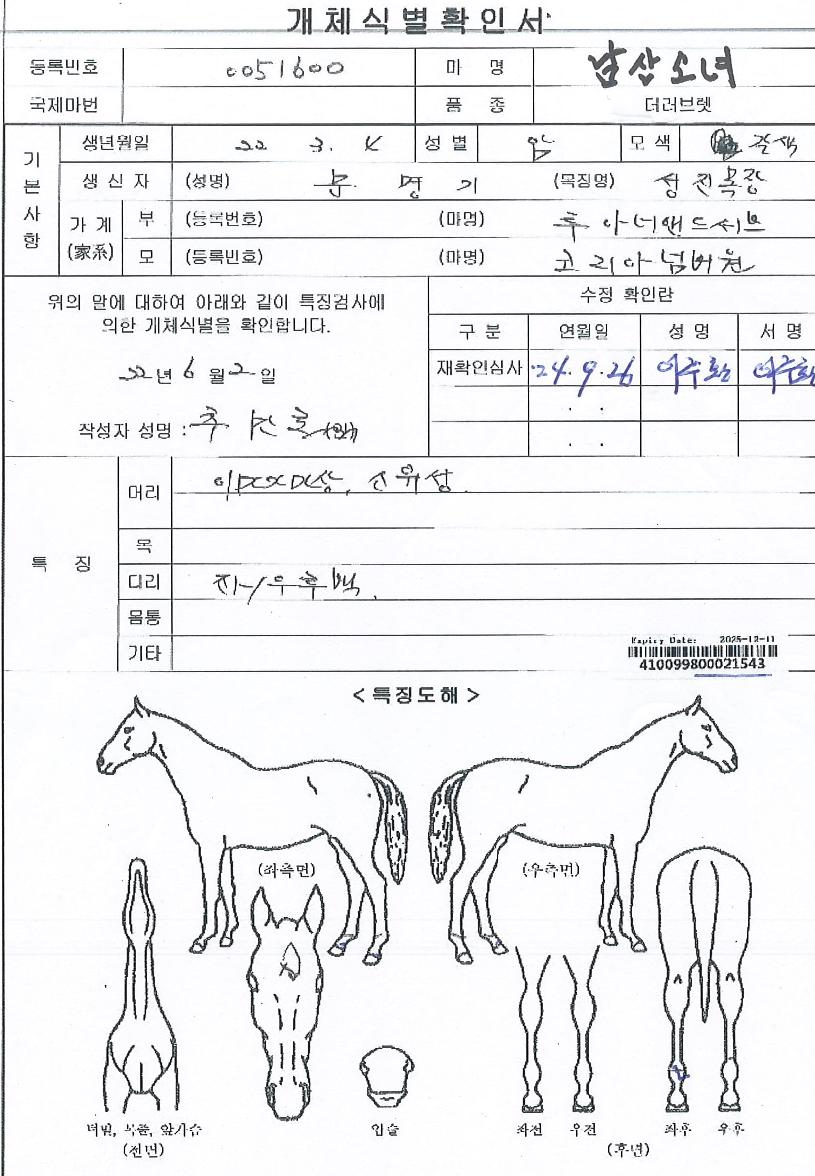 개체식별확인서
등록번호 0051600 마 명 남산소녀
국제마번 품 종 더러브렛
기본사항
생년월일 22 3. 4 성별 암 모색 갈색
생산자 (성명) 문 명 기 (목장명) 성진목장
가계 (家系) 부 (등록번호) (마명) 투아너앤드서브
모 (등록번호) (마명) 코리아넘버원
위의 말에 대하여 아래와 같이 특징검사에
의한 개체식별을 확인합니다.
22년 6월 2일
작성자 성명 : 추
수정 확인란
구 분 연월일 성 명 서 명
재확인심사 '24. 9. 26
. .
. .
특 징
머리
목
다리 좌/우후백.
몸통
기타
Expiry Date: 2025-12-11
410099800021543
< 특징도해 >
(좌측면) (우측면)
입술 좌전 우전 좌후 우후
(전면) (후면)